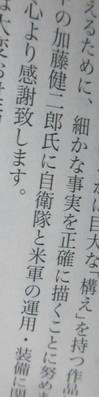 に巨大な「構え」を持つ作品
えるために、細かな事実を正確に描くことに努め
の加藤健二郎氏に自衛隊と米軍の運用・装備に
心より感謝致します。
は大変お